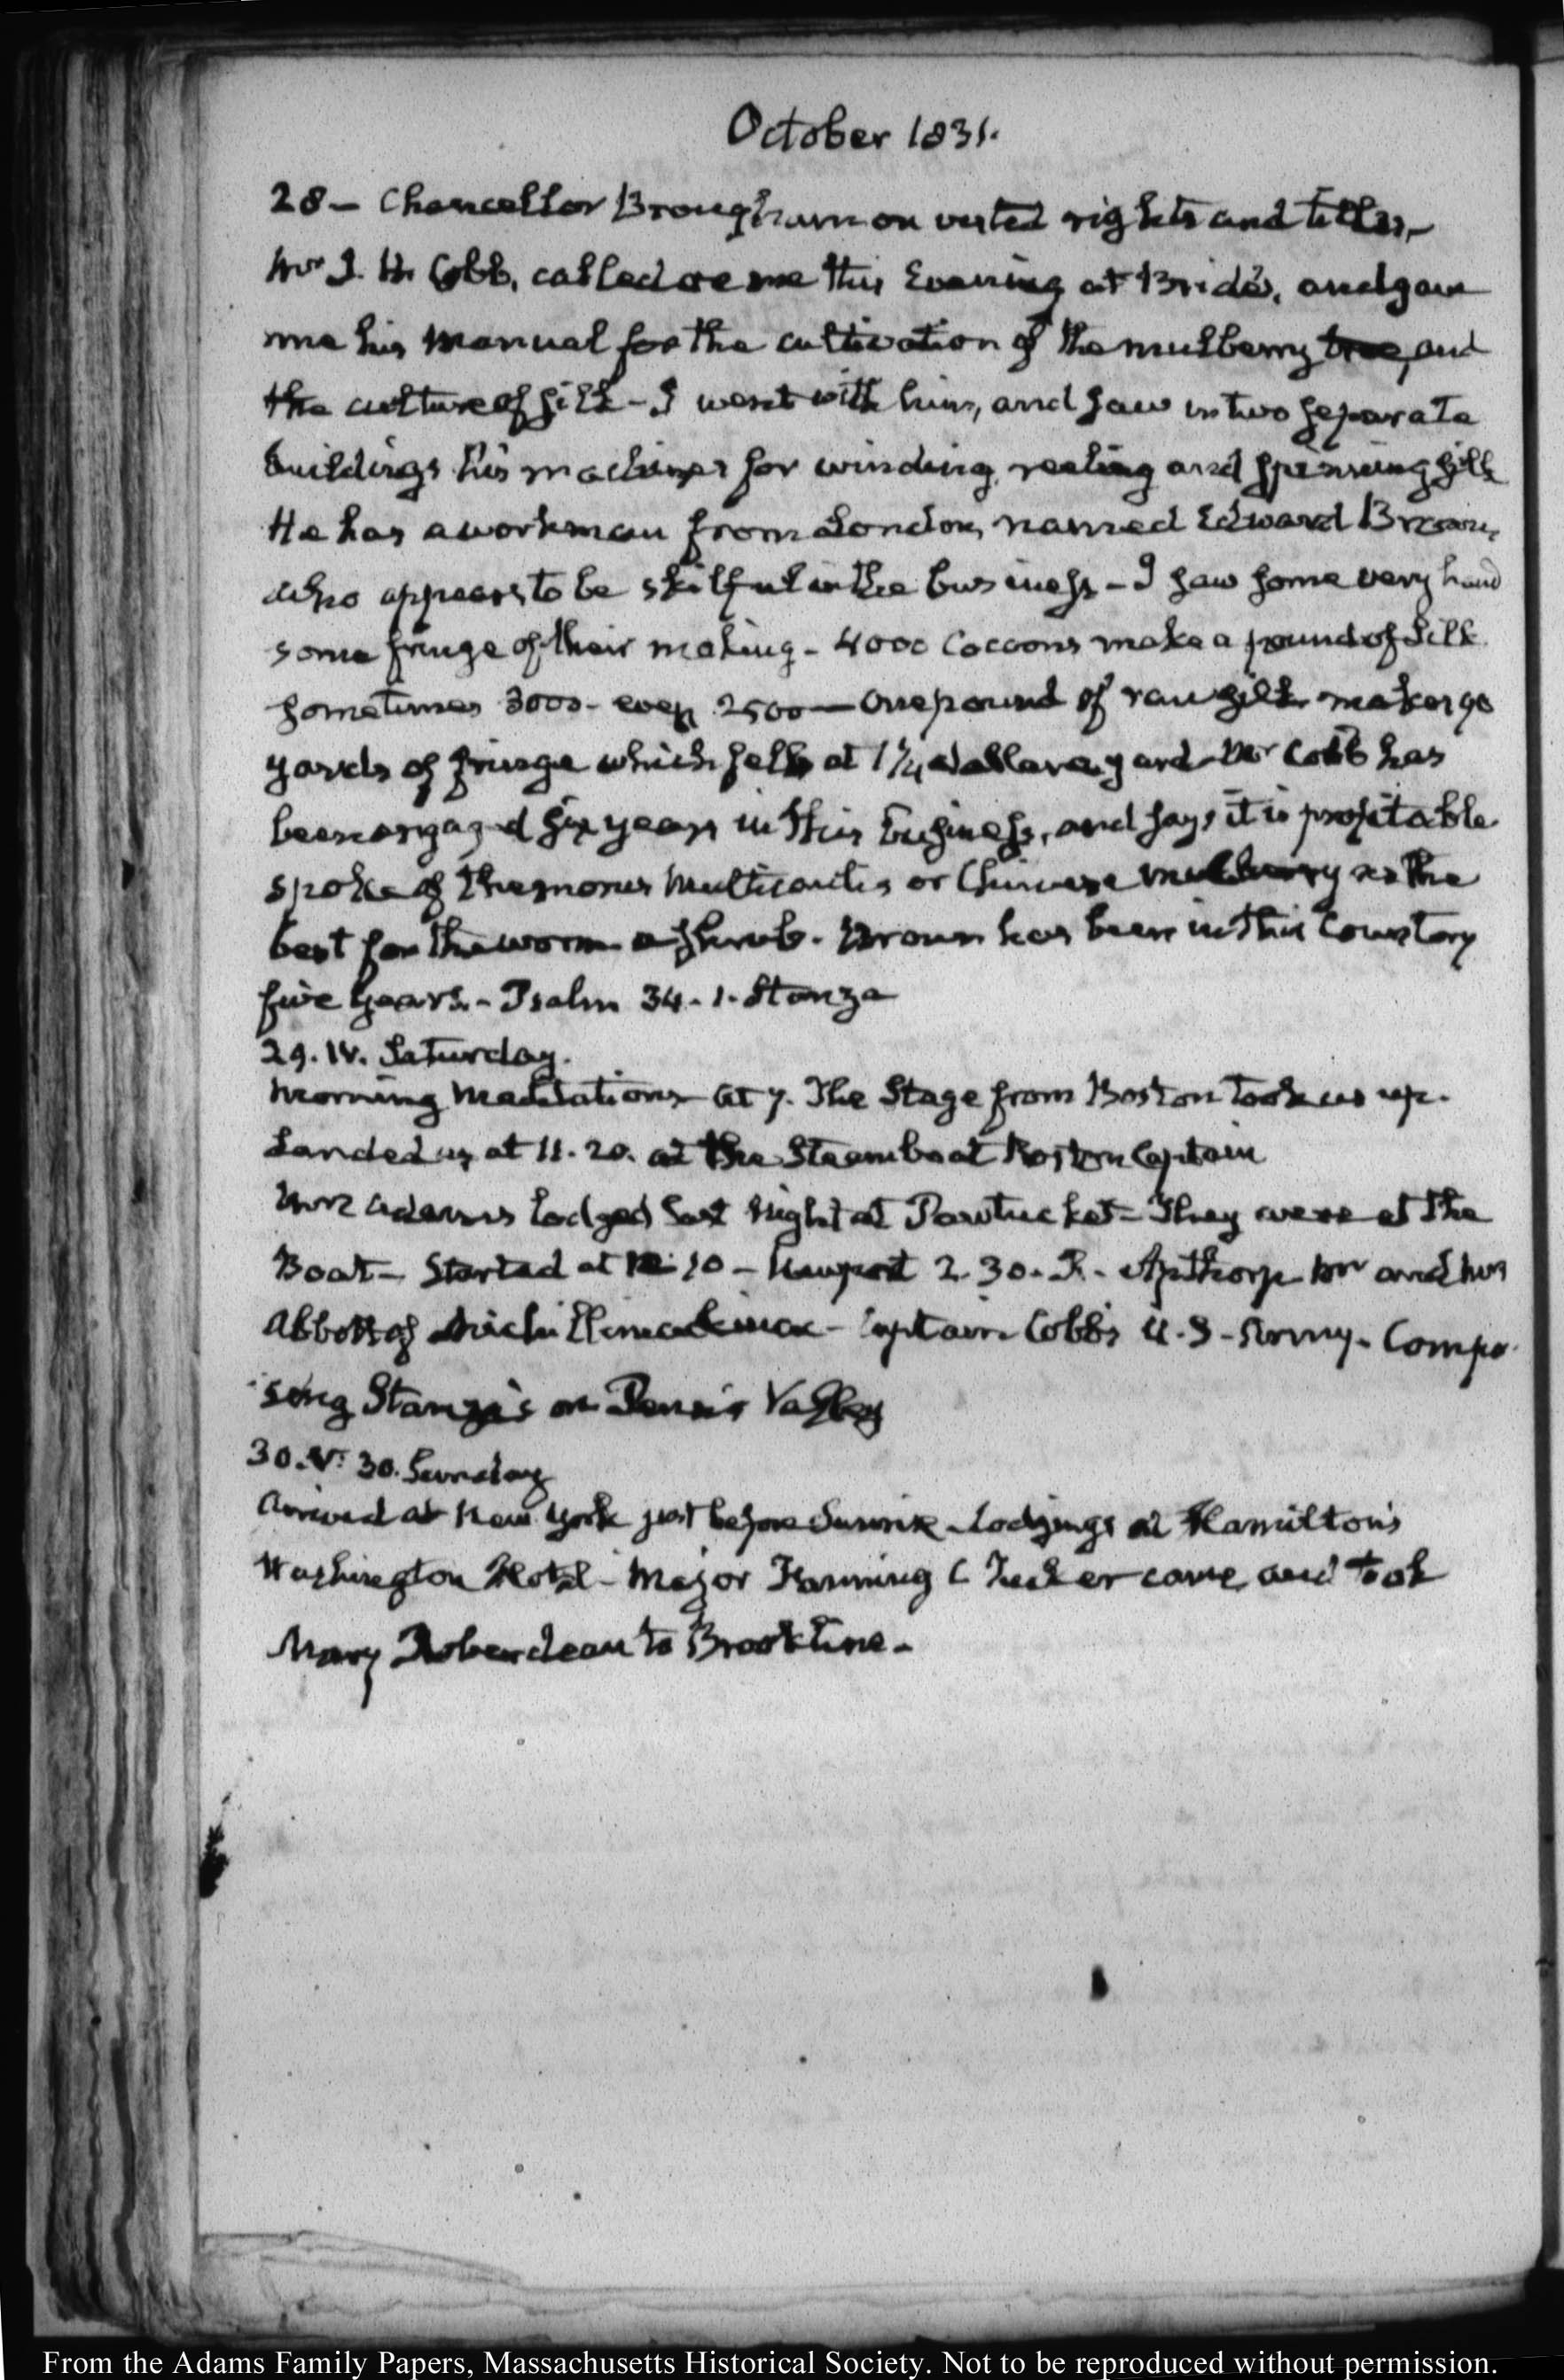 October 1831.
28 – Chancellor Brougham on vested rights and titles –
Mr J. H. Cobb, called on me this Evening at Bride's, and gave
me his Manual for the cultivation of the mulberry tree, and
the culture of silk – I went with him, and saw in two separate
buildings his machines for winding, reeling and spinning silk
He has a workman from London, named Edward Brown,
who appears to be skilful in the business – I saw some very hand
some fringe of their making – 4000 Cocoons make a pound of Silk
sometimes 3000 – even 2500 – One pound of raw silk makes 90
yards of fringe which sells at 1 1/4 dollar a yard – Mr Cobb has
been engaged six years in this business, and says it is profitable
spoke of the morus Multicaulis or Chinese mulberry as the
best for the worm a shrub. Brown has been in this Country
five years. – Psalm 34. 1. Stanza
29. IV. Saturday.
Morning Meditations – At 7. The Stage from Boston took us up.
Landed us at 11. 20. at the Steamboat Boston Captain
Mrs Adams lodged last Night at Pawtucket – They were at the
Boat – Started at 12. 10 – Newport 2. 30. R. Apthorp Mr and Mrs
Abbott of Michillimackinac – Captain Cobbs U.S. Army. Compo
sing Stanza's on
30. V. 30. Sunday
Arrived at New York just before Sunrise – Lodgings at Hamilton's
Washington Hotel – Major Fanning C Tucker came and took
Mary Roberdeau to Brookline –
From the Adams Family Papers, Massachusetts Historical Society. Not to be reproduced without permission.